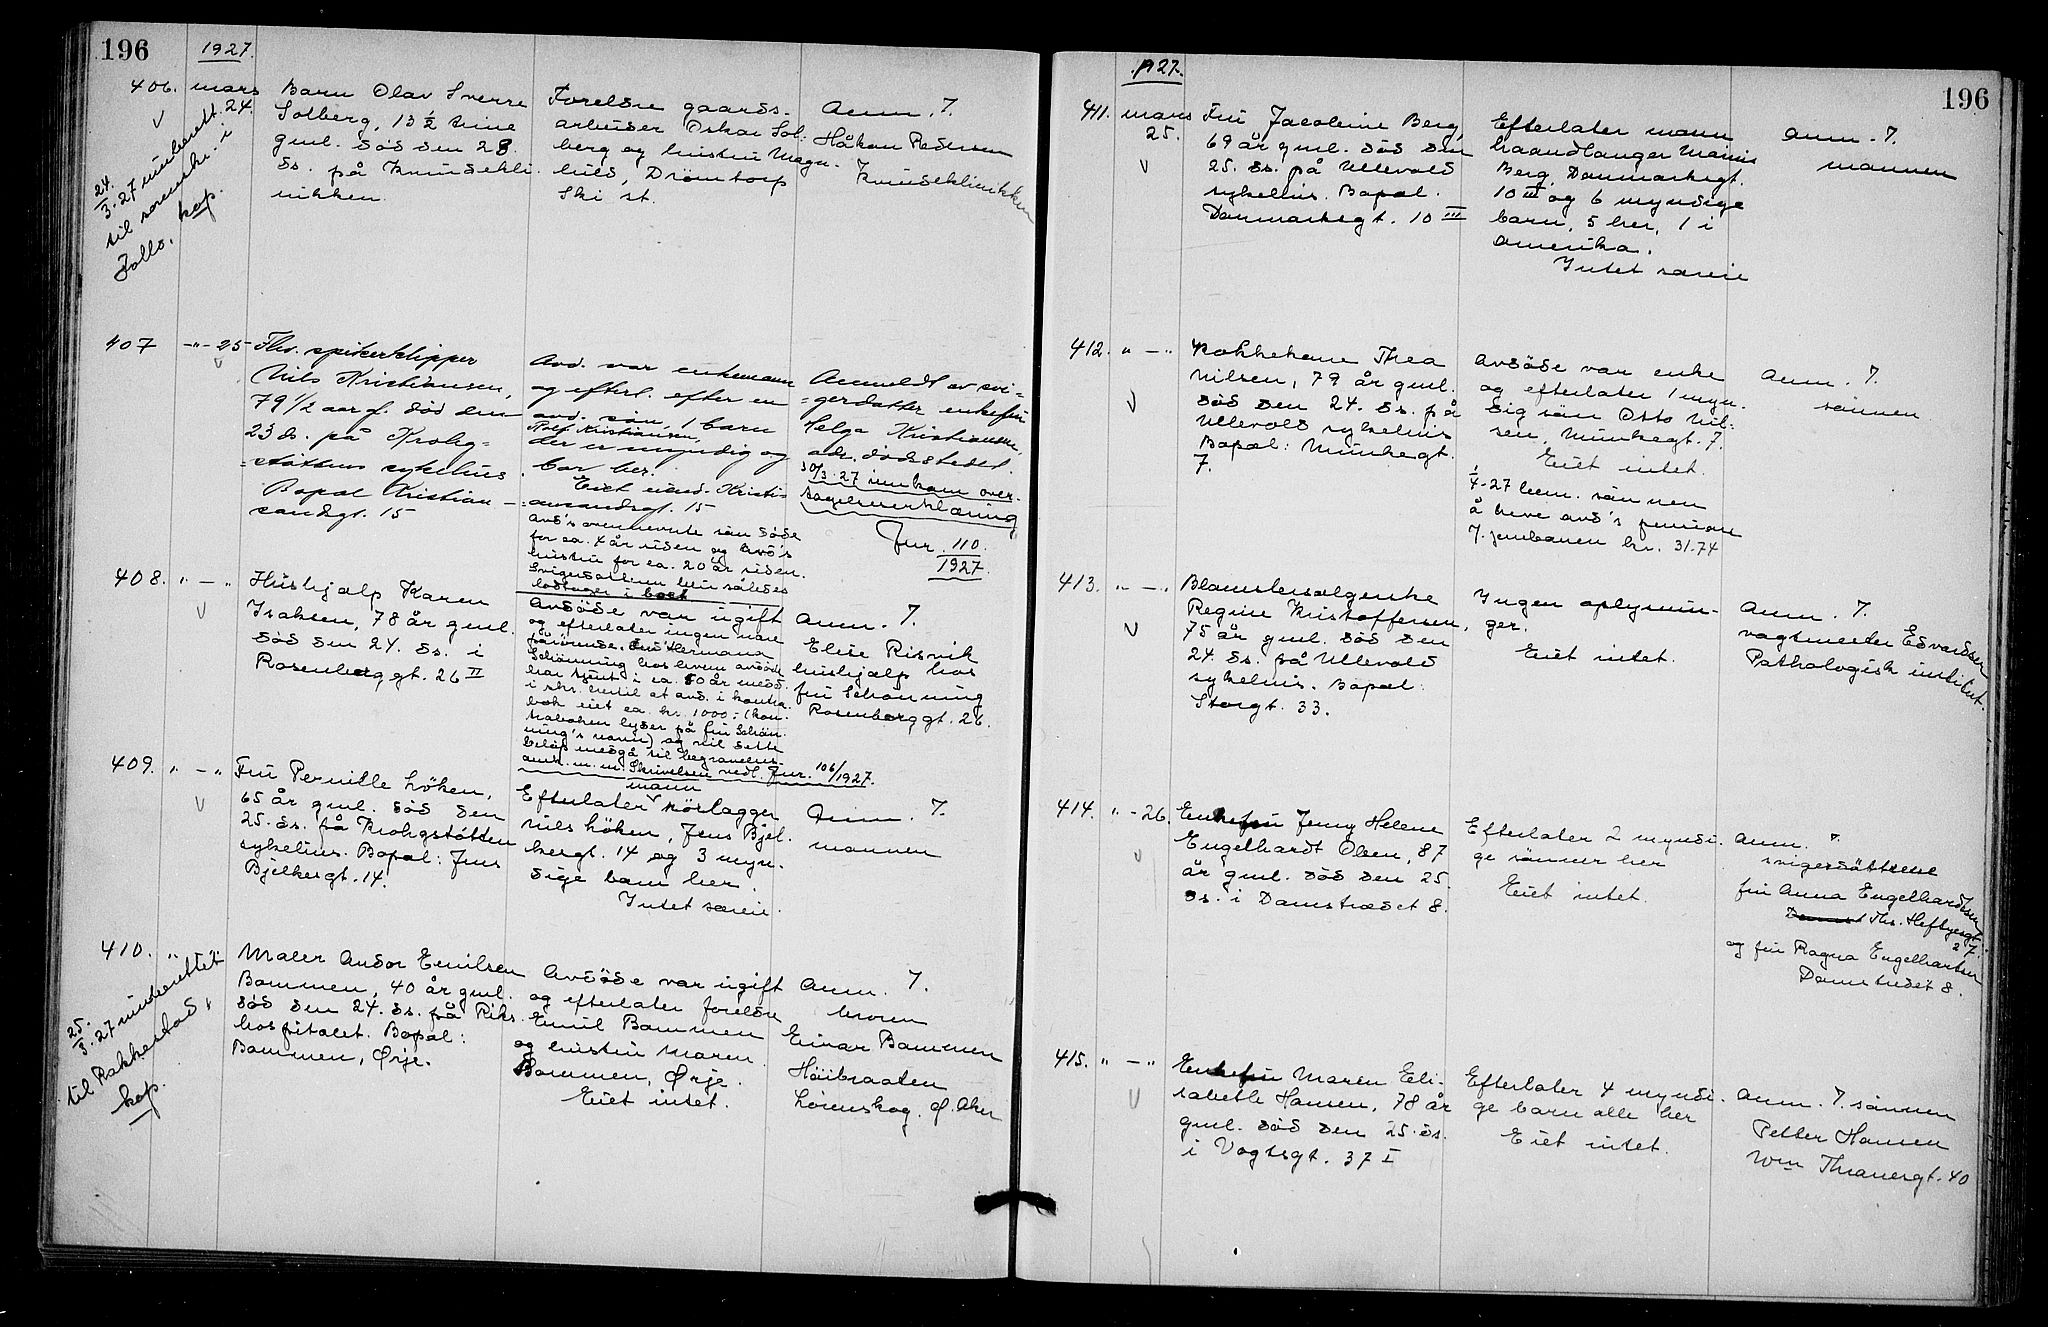 196
1927.
406. mars 24.
Barn Olav Sverre
Solberg, 13 1/2 time
gml. död den 23
ds. på Kvindekli-
nikken.
Foreldre gaards-
arbeider Oskar Sol-
berg og hustru Magn-
hild, Drömtorp
Ski st.
Anm. 7.
Håkon Pedersen
Kvindeklinikken
24/3-27 underrett. i
til sorenskr. i
Follo, kop.
407 -"- 25
Fhv. spikerklipper
Nils Kristiansen,
79 1/2 aar g. död den
23 ds. på Krohg-
støttens sykehus
Bopæl Kristian-
sandsgt. 15
Avd. var enkemann
og efterl. efter en
avd. sön, 1 barn
Rolf Kristiansen,
der er myndig og
bor her.
Eiet eiend. Kristi-
ansandsgt. 15
Avd's ovennevnte sön döde
for ca. 4 år siden og avd's
hustru for ca. 20 år siden.
Svigerdatteren blir således
lodtager i boet
Anmeldt av svi-
gerdatter enkefru
Helga Kristiansen,
adr. dödsstedet.
30/3-27 innkom over-
tagelseserklæring
Jnr. 110/1927.
408. " - "
Hushjælp Karen
Isaksen, 78 år gml.
död den 24. ds. i
Rosenborggt. 26 II
Avdöde var ugift
og efterlater ingen nære
pårörende. Fru Hermana
Schönning hos hvem avdöde
har tjent i ca. 50 år medd.
i skr. hertil at avd. i kontra-
bok eiet ca. kr. 1000,- (kon-
traboken lyder på fru Schön-
ning's navn) og vil dette
belöp medgå til begravelses-
omk. m. m. Skrivelsen vedl. Jnr. 106/1927.
Anm. 7.
Elise Risvik
hushjælp hos
fru Schönning
Rosenborggt. 26.
409. " - "
Fru Pernille Löken,
65 år gml. död den
25. ds. på Krohgstötten
sykehus. Bopæl: Jens
Bjelkesgt. 14.
mann
Efterlater kördlagger
Nils Löken, Jens Bjel-
kesgt. 14 og 3 myn-
dige barn her.
Intet særeie.
Anm. 7.
mannen
410. " - "
Maler Andor Emilsen
Bommen, 40 år gml.
död den 24. ds. på Riks-
hospitalet. Bopæl:
Bommen, Ørje.
Avdöde var ugift
og efterlater foreldre
Emil Bommen
og hustru Maren
Bommen, Ørje.
Eiet intet.
Anm. 7.
broren
Einar Bommen
Höibraaten
Lörenskog. Ö. Aker
25/3-27 underrettet
til Rakkestad s.
kop.
196
1927.
411. mars 25.
Fru Jacobine Berg,
69 år gml. död den
25. ds. på Ullevold
sykehus. Bopæl:
Danmarksgt. 10 III
Efterlater mann
haandlanger
Berg, Danmarksgt.
10 III og 6 myndige
barn, 5 her, 1 i
Amerika.
Intet særeie
Anm. 7.
mannen
412. " - "
Kokkekone Thea
Nilsen, 79 år gml.
död den 24. ds. på
Ullevold sykehus
Bopæl: Munkegt.
7.
Avdöde var enke
og efterlater 1 myn-
dig sön Otto Nil-
sen, Munkegt. 7.
Eiet intet.
1/4-27 bem. sönnen
å heve avd's pension
f. jernbanen kr. 31.74
Anm. 7.
sönnen
413. " - "
Blomstersælgerske
Regine Kristoffersen,
75 år gml. död den
24. ds. på Ullevold
sykehus. Bopæl:
Storgt. 33.
Ingen oplysnin-
ger.
Eiet intet.
Anm. 7.
vagtmester Edvardsen
Pathologisk institut.
414. " - 26.
Enkefru Jenny Helene
Engelhardt Olsen, 87
år gml. död den 25.
ds. i Damstrædet 8.
Efterlater 2 myndi-
ge sönner her
Eiet intet.
Anm. 7.
svigerdöttrene
fru Anna Engelhardtsen
Ths. Heftyesgt.
27.
og fru Ragna Engelhartsen
Damstredet 8.
415. " - "
Enkefru Maren Eli-
sabeth Hansen, 78 år
gml. död den 25. ds.
i Vogtsgt. 37 I
Efterlater 4 myndi-
ge barn alle her
Eiet intet.
Anm. 7. sönnen
Petter Hansen
Wm Thranesgt. 40